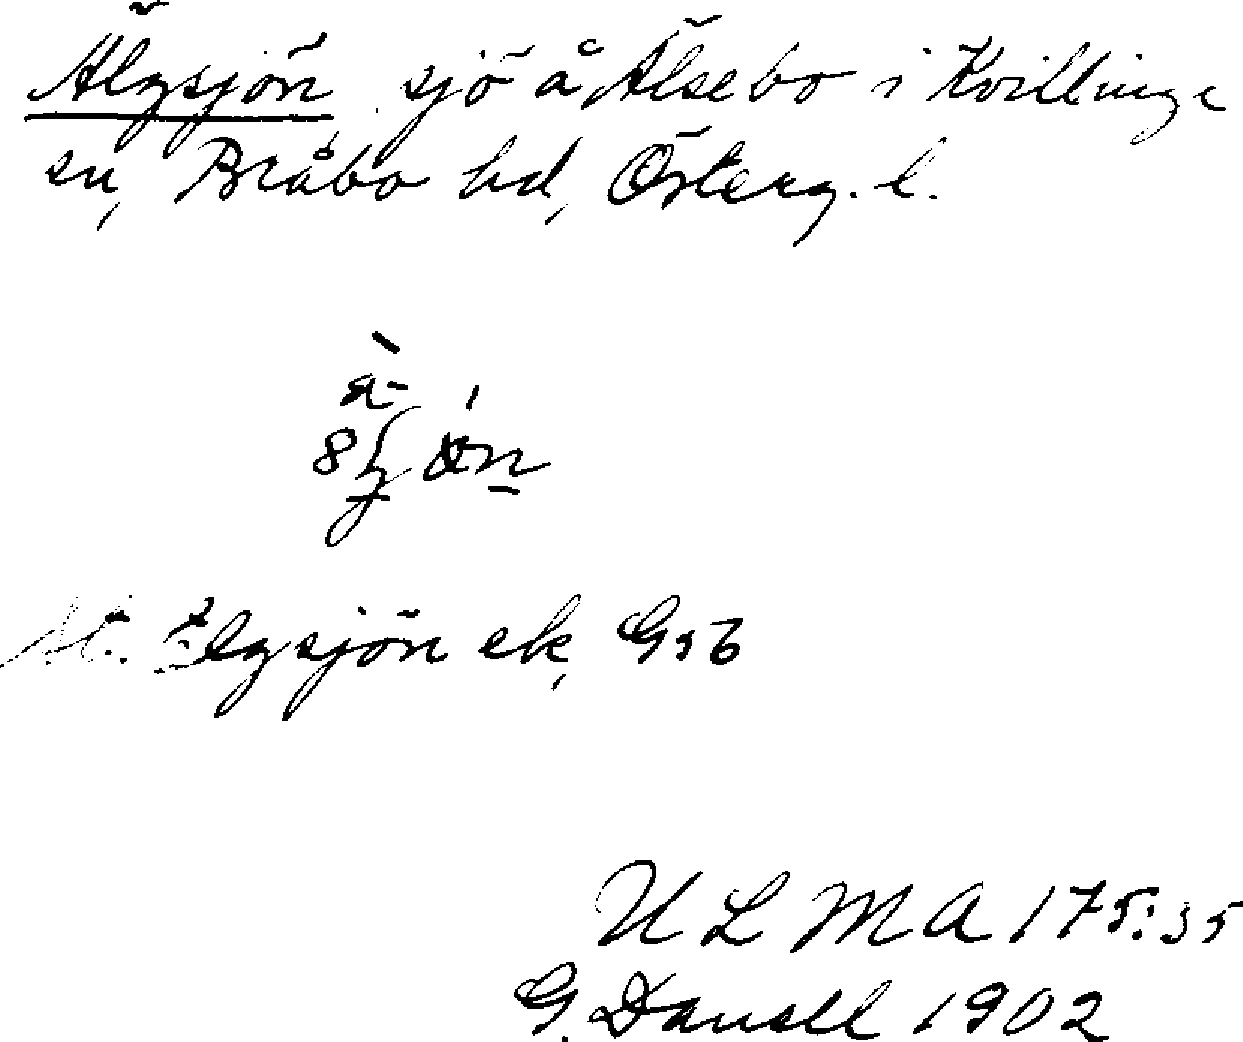 Älgsjön sjö å Älsebo i Kvillinge
sn, Bråbo hd, Österg. l.
Älgsjön ek, Gsb
ULMA 175:35
G. Danell 1902